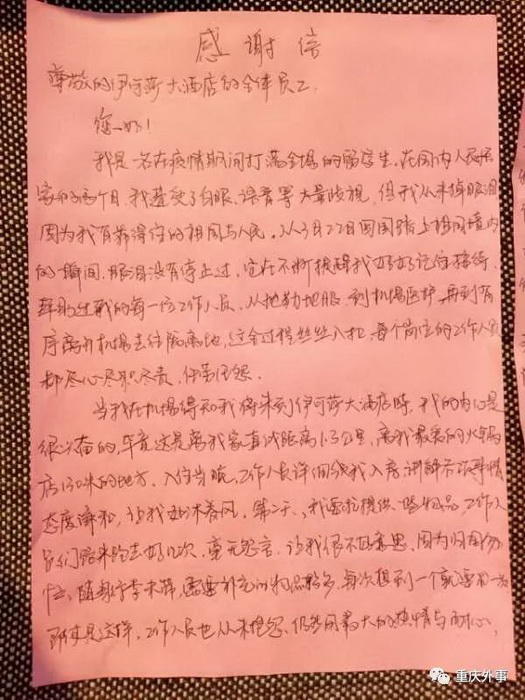 感谢信
尊敬的伊可莎大酒店的全体员工:
您好!
我是一名在疫情期间打满全场的留学生,在国内人民居
家的两个月,我遭受了白眼、语言等大量歧视,但我从未掉眼泪
因为我有靠得住的祖国与人民。从3月22日回国踏上祖国境内
的瞬间,眼泪没有停止过,它在不断提醒我好好记住接待、
帮助过我的每一位工作人员。从地勤地服,到机场医护,再到有
序离开机场去往隔离地,这全过程丝丝入扣,每个岗位的工作人员
都尽心尽职尽责,任劳任怨。
当我在机场得知我将来到伊可莎大酒店时,我的内心是
很兴奋的,毕竟这是离我家直线距离1.3公里,离我最爱的火锅
店130米的地方。入住当晚,工作人员详细给我入房讲解
态度谦和,让我如沐春风。第二天,我要求提供一些物品,工作人
员们跑来跑去好几次,毫无怨言,让我很不好意思。因为归国匆
忙,随身行李未带,需要补充的物品较多,每次想到一个就要
即使是这样,工作人员也从未抱怨,仍然用最大的热情与耐心,
重庆外事